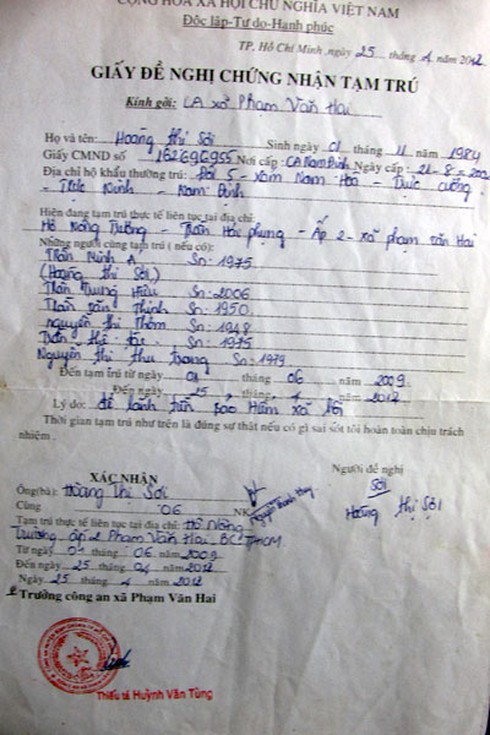 CỘNG HÒA XÃ HỘI CHỦ NGHĨA VIỆT NAM
Độc lập-Tự do-Hạnh phúc
TP. Hồ Chí Minh, ngày 25 tháng 4 năm 2012
GIẤY ĐỀ NGHỊ CHỨNG NHẬN TẠM TRÚ
Kính gởi: CA xã Phạm Văn Hai
Họ và tên: Hoàng thị Sợi Sinh ngày 01 tháng 11 năm 1984
Giấy CMND số 162696955 Nơi cấp: CA Nam Định Ngày cấp: 21-8-200
Địa chỉ hộ khẩu thường trú: Đội 5 - xóm Nam Hòa - Trực cường -
Trực Ninh - Nam Định
Hiện đang tạm trú thực tế liên tục tại địa chỉ:
Hồ Nông Trường - Trần Hải phụng - Ấp 2 - xã phạm văn Hai
Những người cùng tạm trú (nếu có):
Trần Minh Á Sn: 1975
(Hoàng thị Sợi)
Trần Trung Hiếu Sn: 2006
Trần văn Thịnh Sn: 1950
nguyễn thị Thơm Sn: 1948
Trần thế Sn: 1975
Nguyễn thị thu trang Sn: 1979
Đến tạm trú từ ngày 01 tháng 06 năm 2009
Đến ngày 25, tháng, 4 năm 2012
Lý do: để lãnh tiền Bảo Hiểm xã Hội
Thời gian tạm trú như trên là đúng sự thật nếu có gì sai sót tôi hoàn toàn chịu trách
nhiệm.
XÁC NHẬN
Người đề nghị
Ông(bà): Hoàng Thị Sợi
Sợi
Cùng 06 NK
Hoàng thị Sợi
Tạm trú thực tế liên tục tại địa chỉ: Hồ Nông
Trường ấp 2 Phạm Văn Hai, BC TPHCM
Từ ngày 01 tháng 06 năm 2009
Đến ngày 25 tháng 04 năm 2012
Ngày 25 tháng 4 năm 2012
Trưởng công an xã Phạm Văn Hai
Thiếu tá Huỳnh Văn Tùng